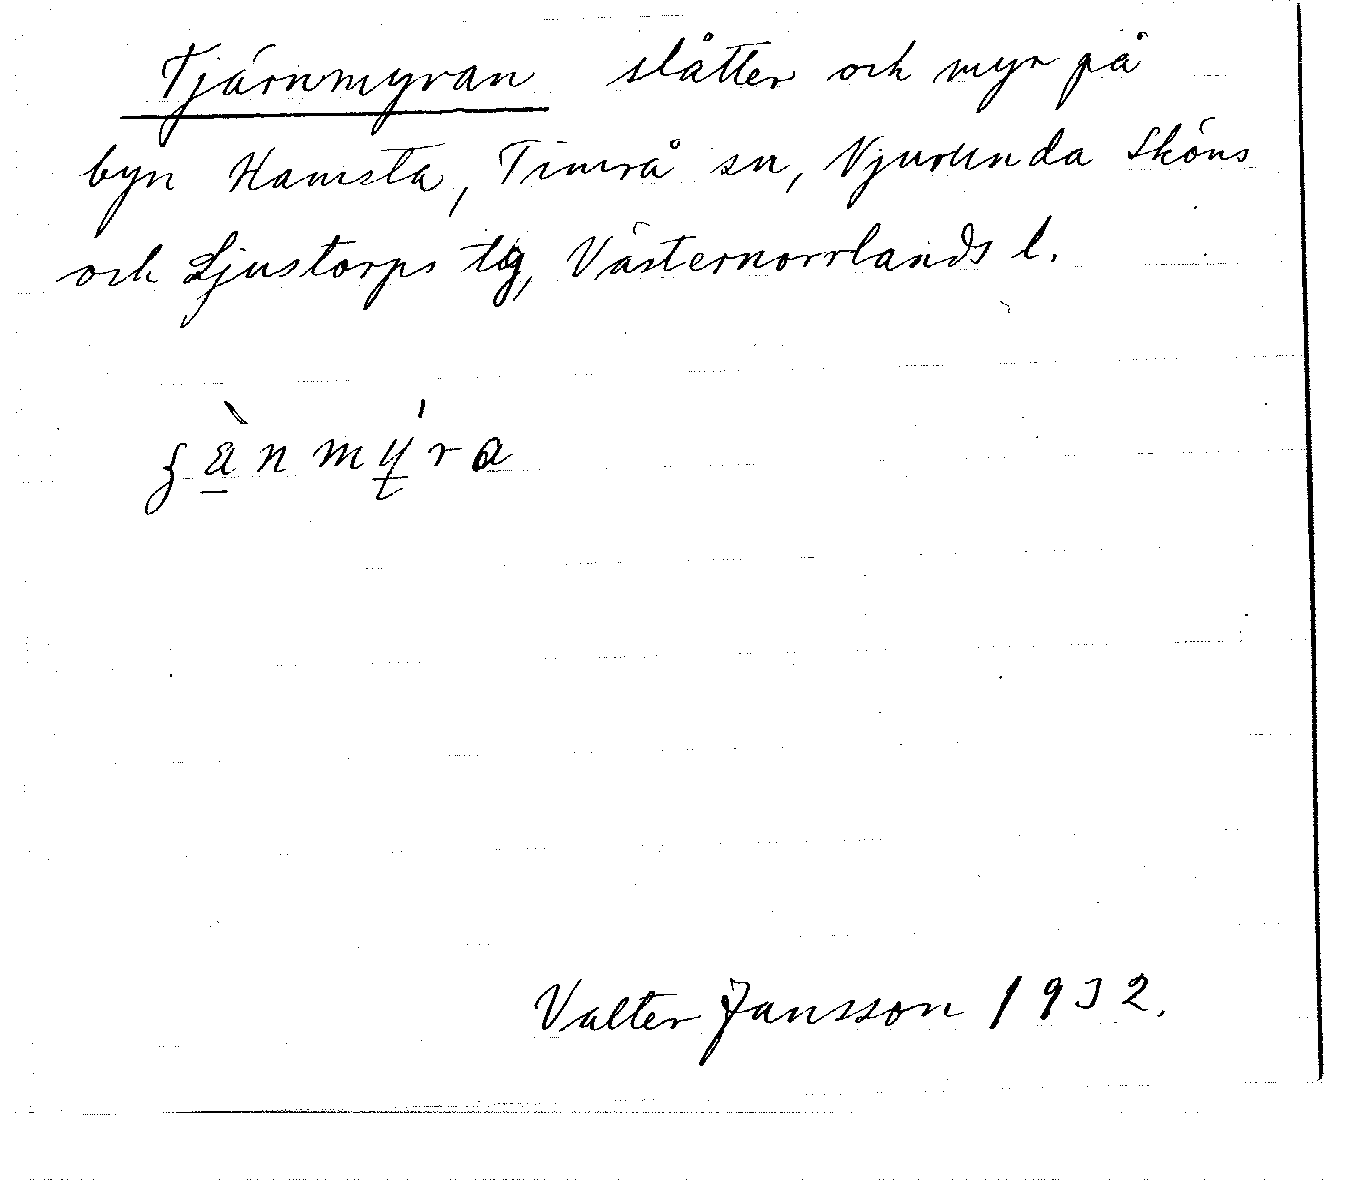 Tjärnmyran slåtter och myr på
byn Hamsta, Timrå sn, Njurunda Sköns
och Ljustorps tlg, Västernorrlands l.
Valter Jansson 1932.